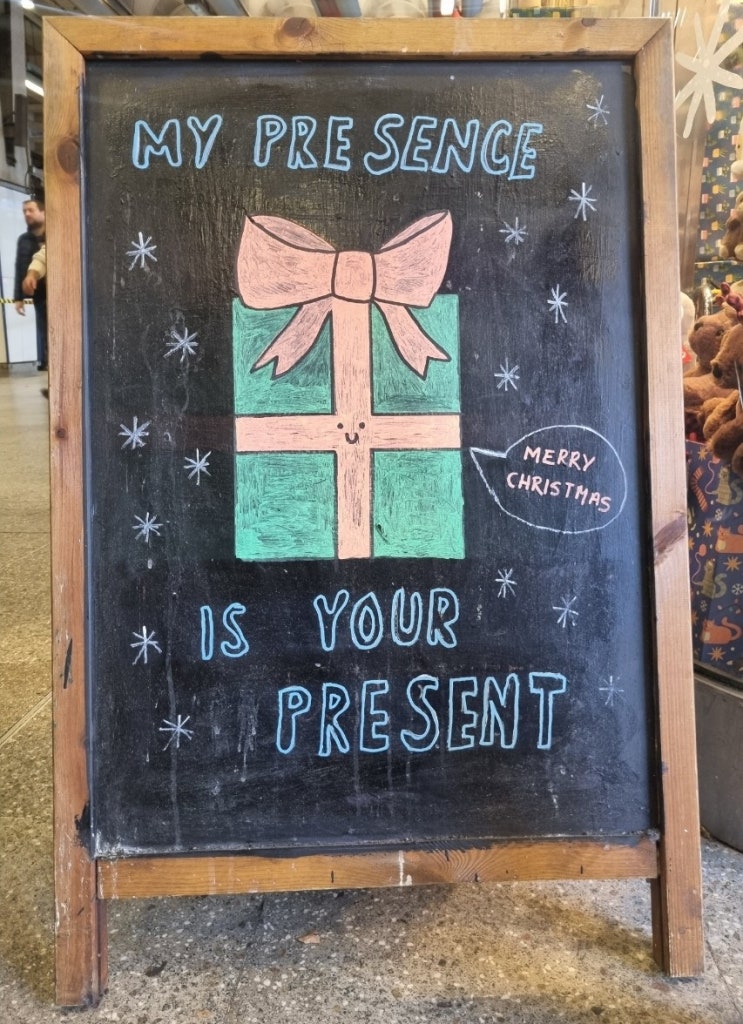 MY PRESENCE
MERRY
CHRISTMAS
IS YOUR
PRESENT